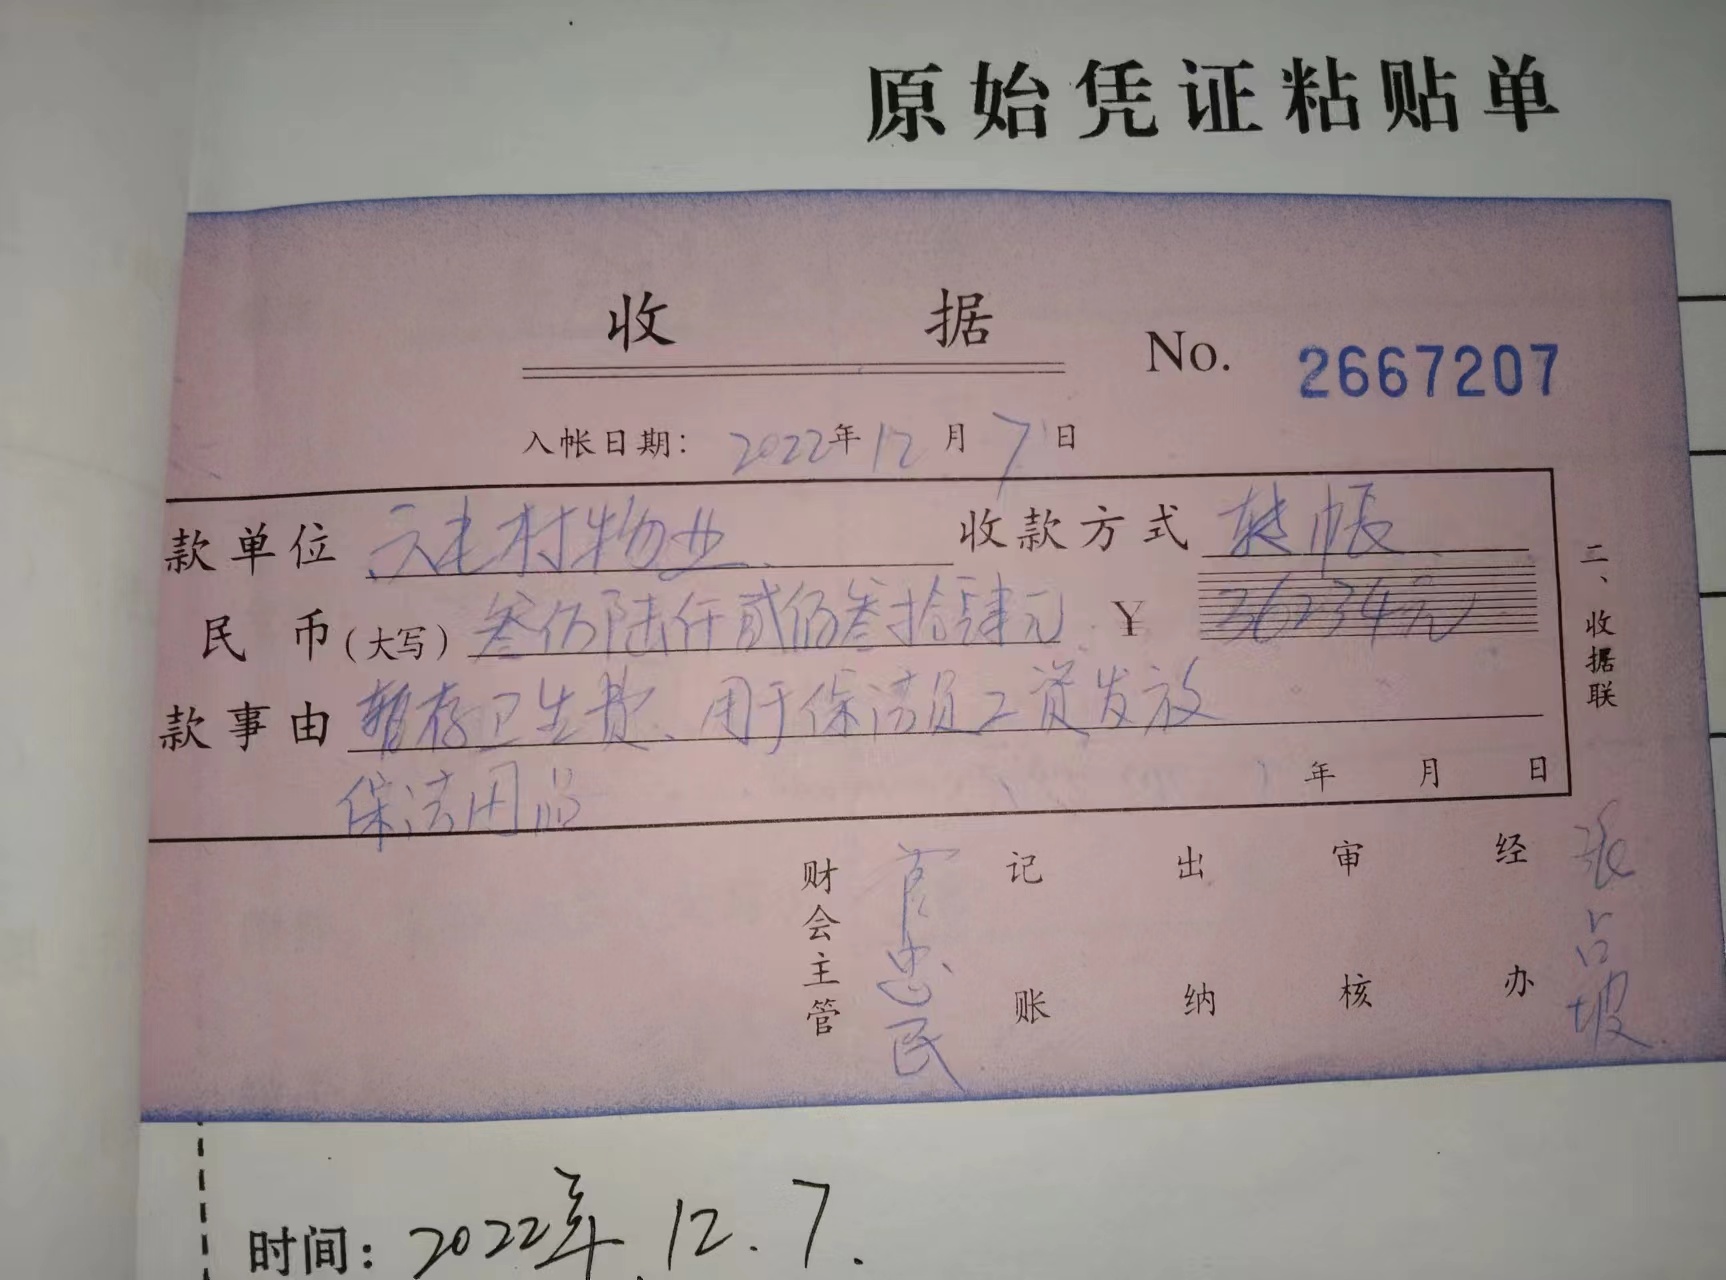 原始凭证粘贴单
收据 No. 2667207
入帐日期: 2022年12月7日
款单位 元七村物业 收款方式 转帐
民币(大写) 叁仟陆仟贰佰叁拾肆元 ¥ 36234元
款事由 暂存卫生费、用于保洁员工资发放
保洁用品
年 月 日
二、收据联
财会主管 忠民 记账 出纳 审核 经办 张占坡
时间: 2022年.12.7.